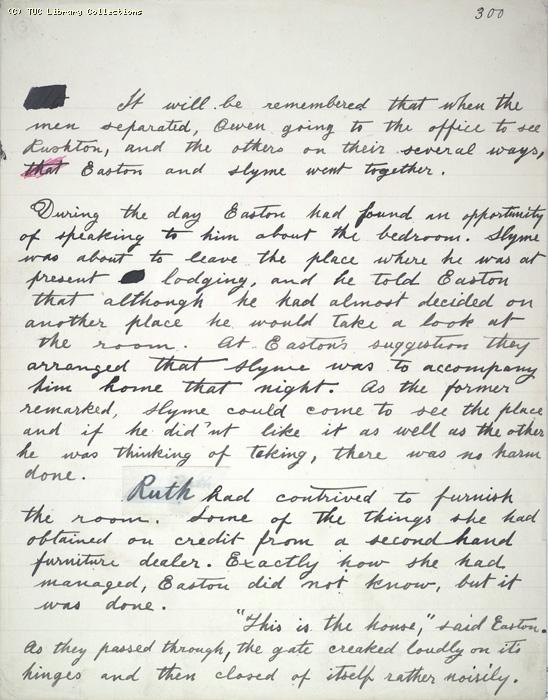 (C) TUC Library Collections
300
It will be remembered that when the
men separated, Owen going to the office to see
Rushton, and the others on their several ways,
that Easton and Slyme went together.
During the day Easton had found an opportunity
of speaking to him about the bedroom. Slyme
was about to leave the place where he was at
present lodging, and he told Easton
that although he had almost decided on
another place he would take a look at
the room. At Easton's suggestion they
arranged that Slyme was to accompany
him home that night. As the former
remarked, Slyme could come to see the place
and if he did'nt like it as well as the other
he was thinking of taking, there was no harm
done.
Ruth had contrived to furnish
the room. Some of the things she had
obtained on credit from a second hand
furniture dealer. Exactly how she had
managed, Easton did not know, but it
was done.
"This is the house," said Easton.
As they passed through, the gate creaked loudly on its
hinges and then closed of itself rather noisily.